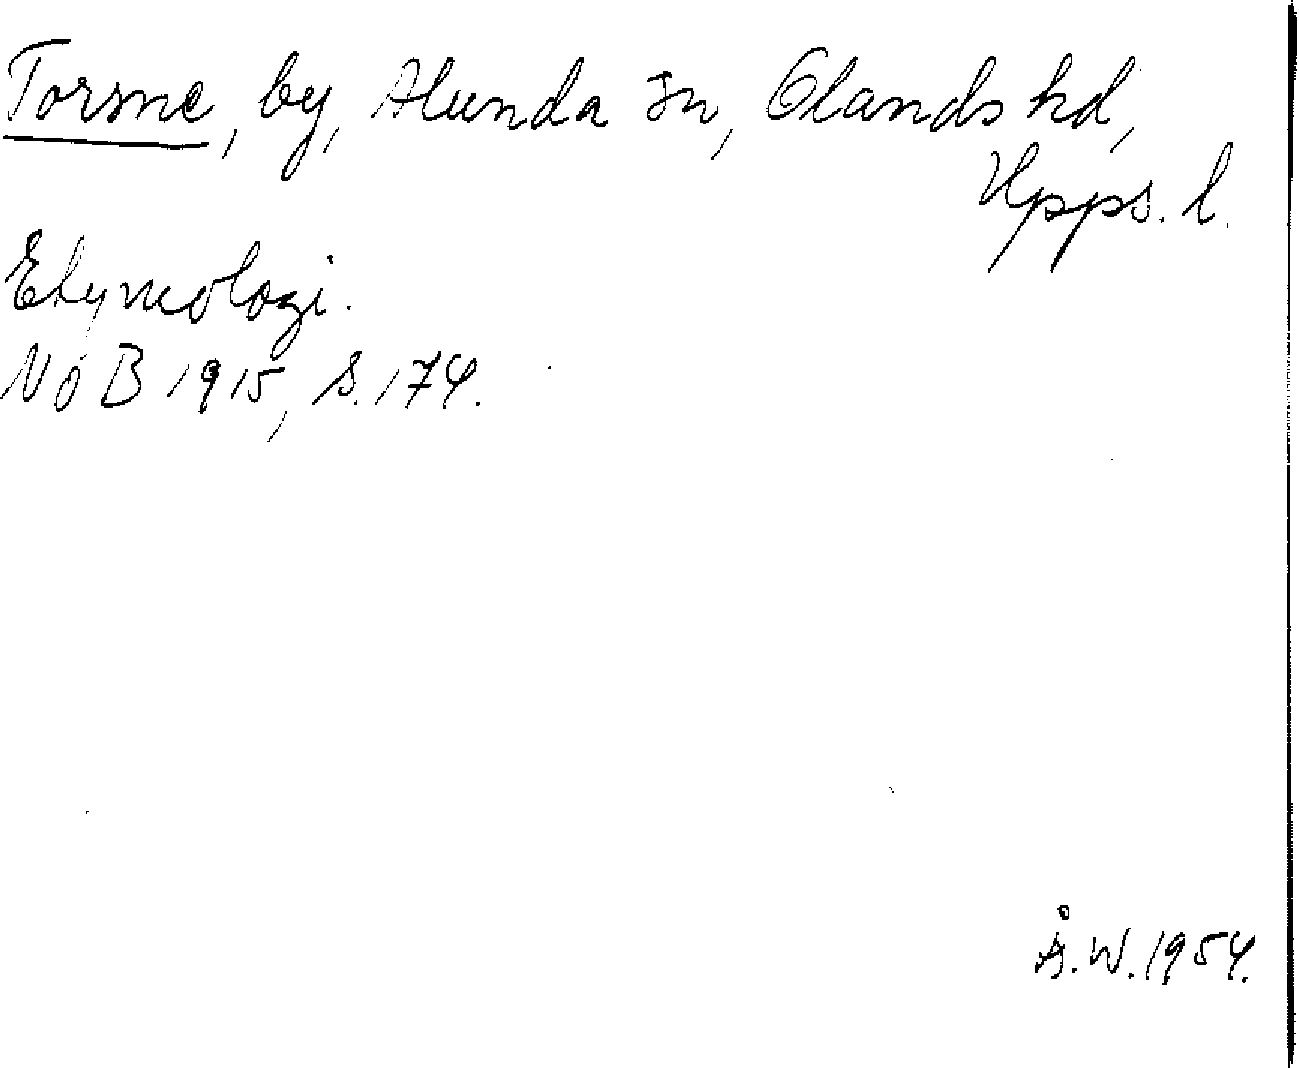 Torsme, by, Alunda sn, Olands hd,
Upps. l.
Etymologi.
NoB 1915, s. 174.
Å.W. 1954.